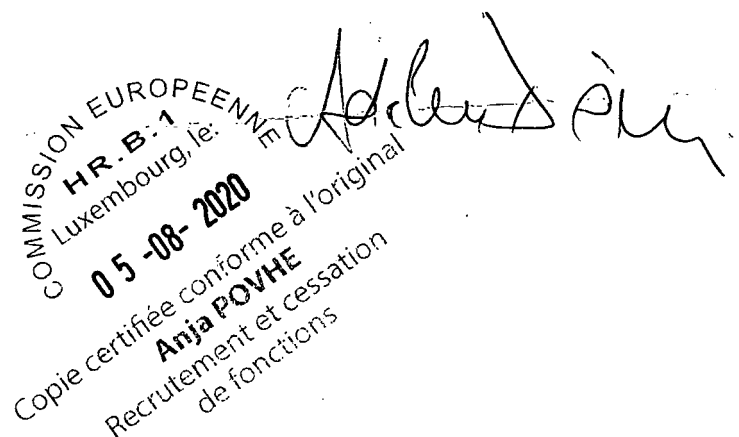 COMMISSION EUROPEENNE
HR.B.1
Luxembourg, le:
05-08-2020
Copie certifiée conforme à l'original
Anja POVHE
Recrutement et cessation
de fonctions